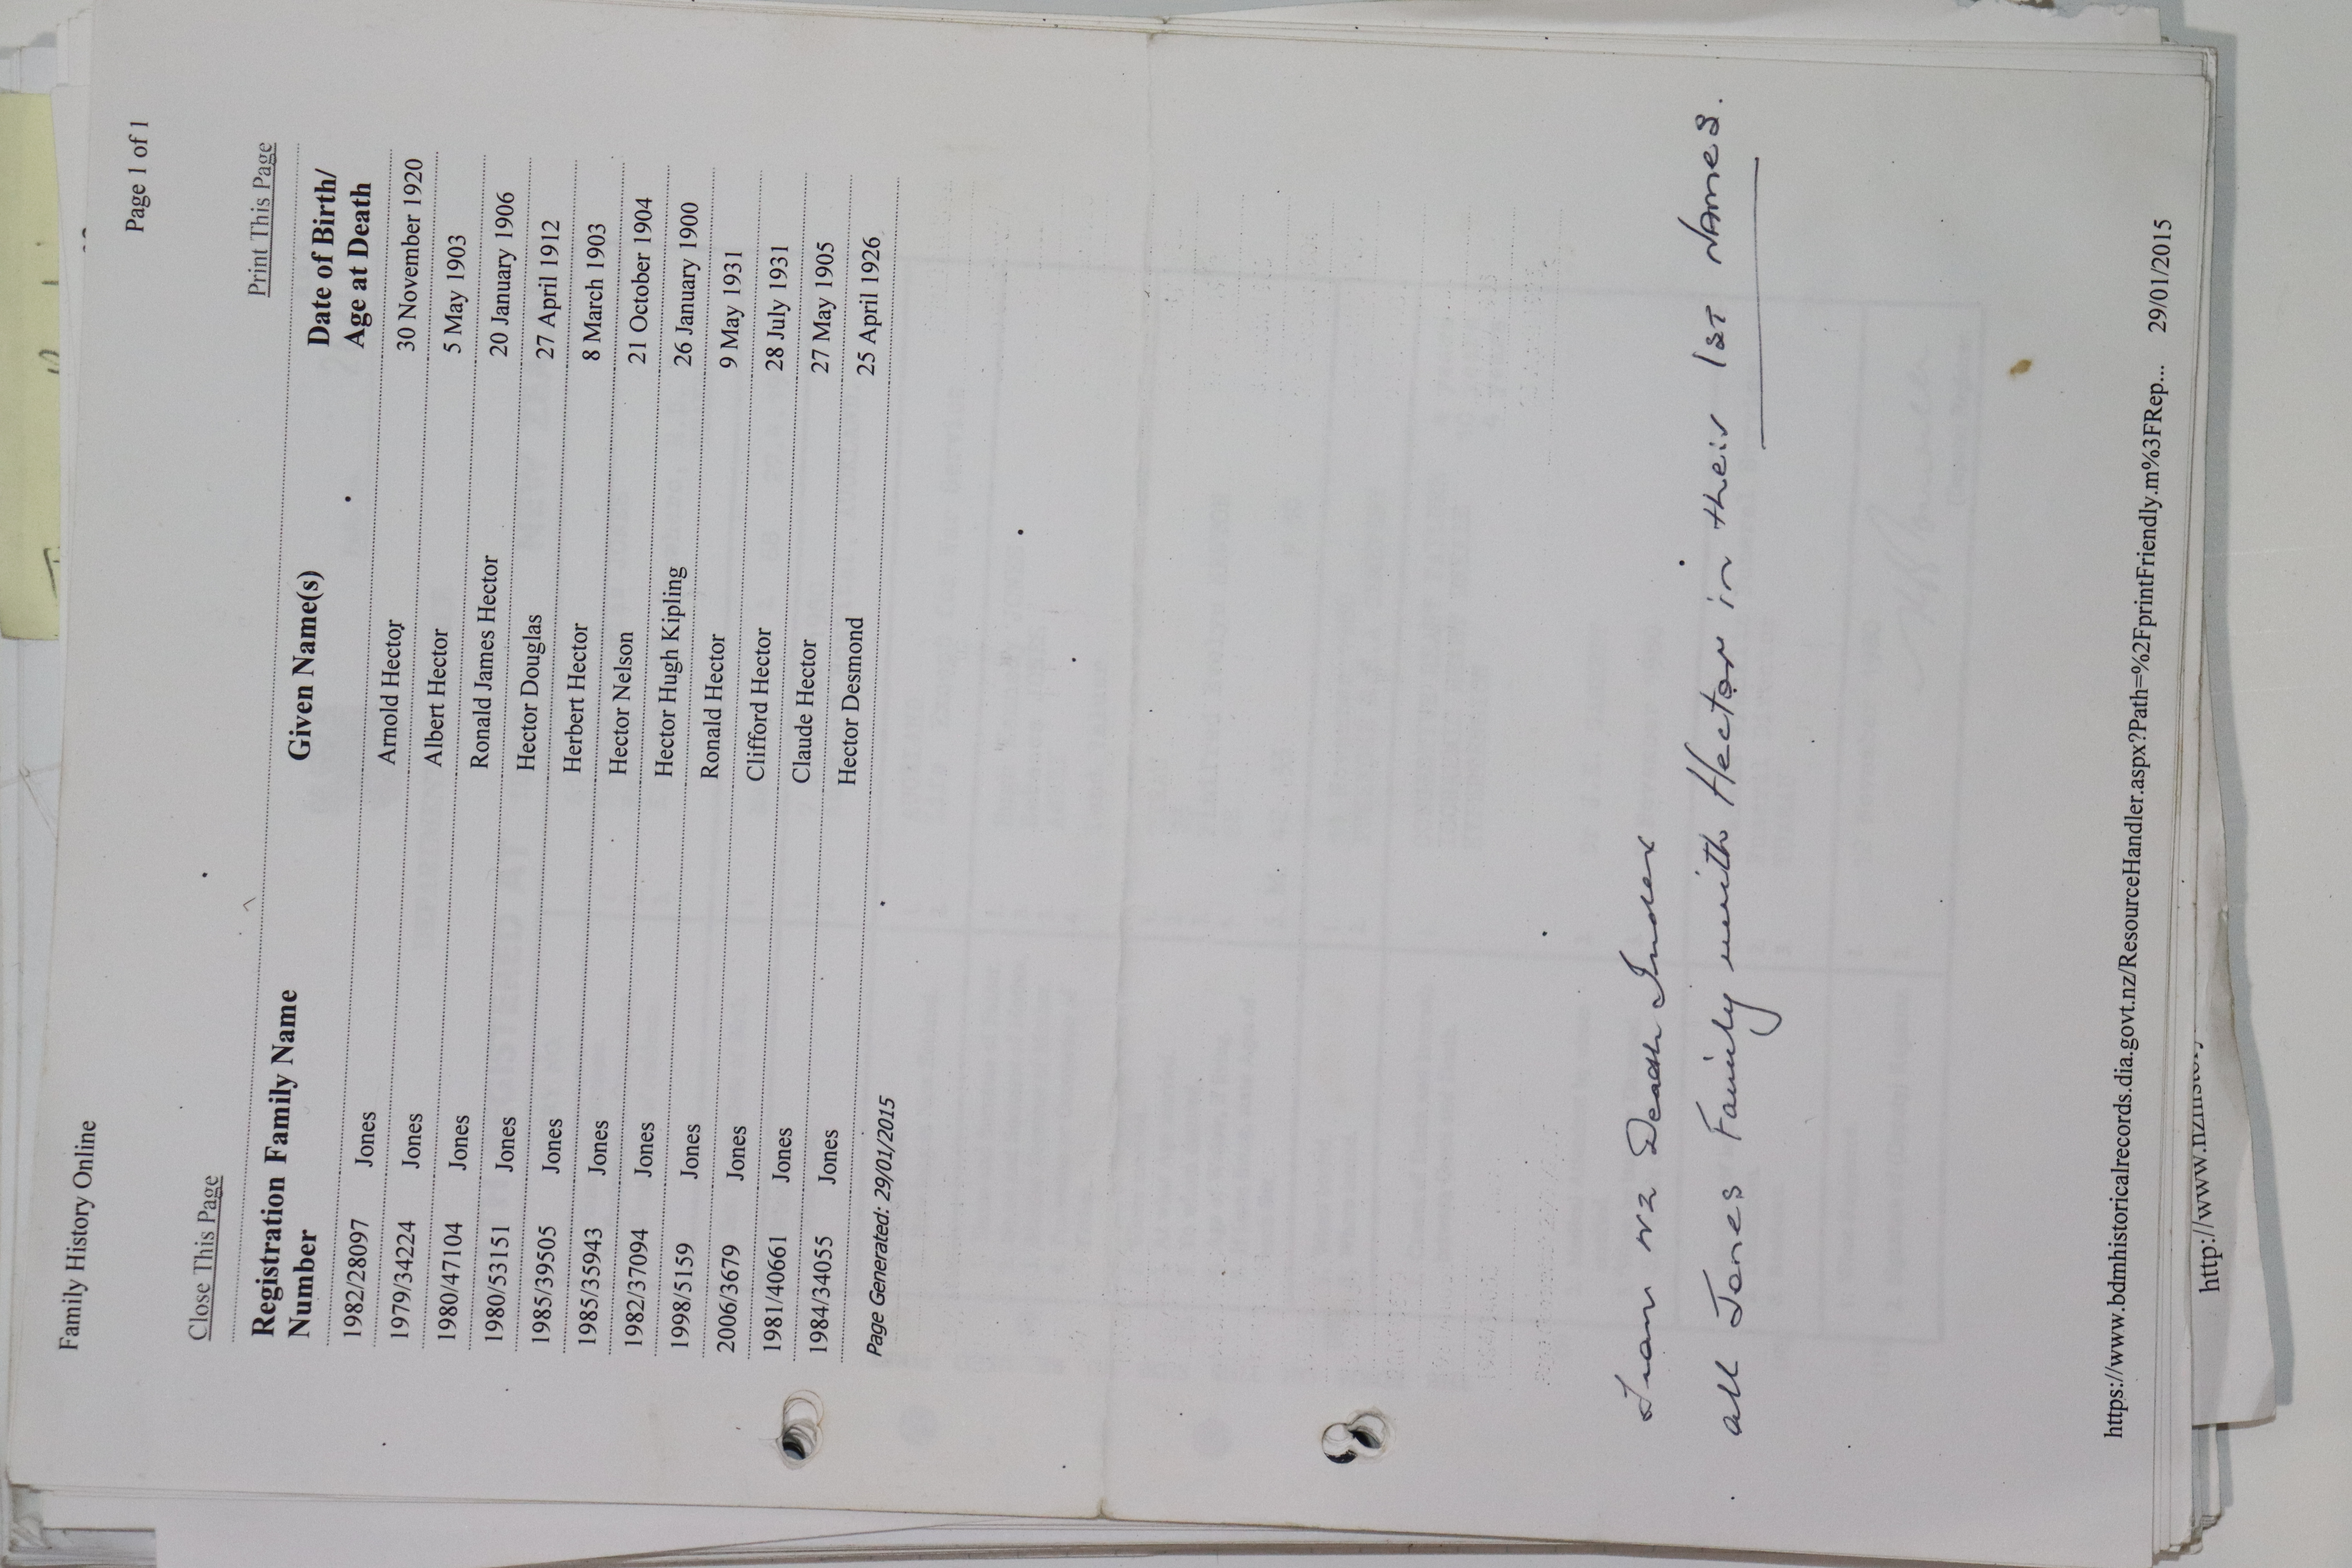 Family History Online
Page 1 of 1
Close This Page
Print This Page
Registration Family Name Given Name(s) Date of Birth/
Number Age at Death
1982/28097 Jones Arnold Hector 30 November 1920
1979/34224 Jones Albert Hector 5 May 1903
1980/47104 Jones Ronald James Hector 20 January 1906
1980/53151 Jones Hector Douglas 27 April 1912
1985/39505 Jones Herbert Hector 8 March 1903
1985/35943 Jones Hector Nelson 21 October 1904
1982/37094 Jones Hector Hugh Kipling 26 January 1900
1998/5159 Jones Ronald Hector 9 May 1931
2006/3679 Jones Clifford Hector 28 July 1931
1981/40661 Jones Claude Hector 27 May 1905
1984/34055 Jones Hector Desmond 25 April 1926
Page Generated: 29/01/2015
From NZ Death Index
all Jones Family with Hector in their 1ST NAMES.
https://www.bdmhistoricalrecords.dia.govt.nz/ResourceHandler.aspx?Path=%2FprintFriendly.m%3FRep... 29/01/2015
http://www.nzhistory